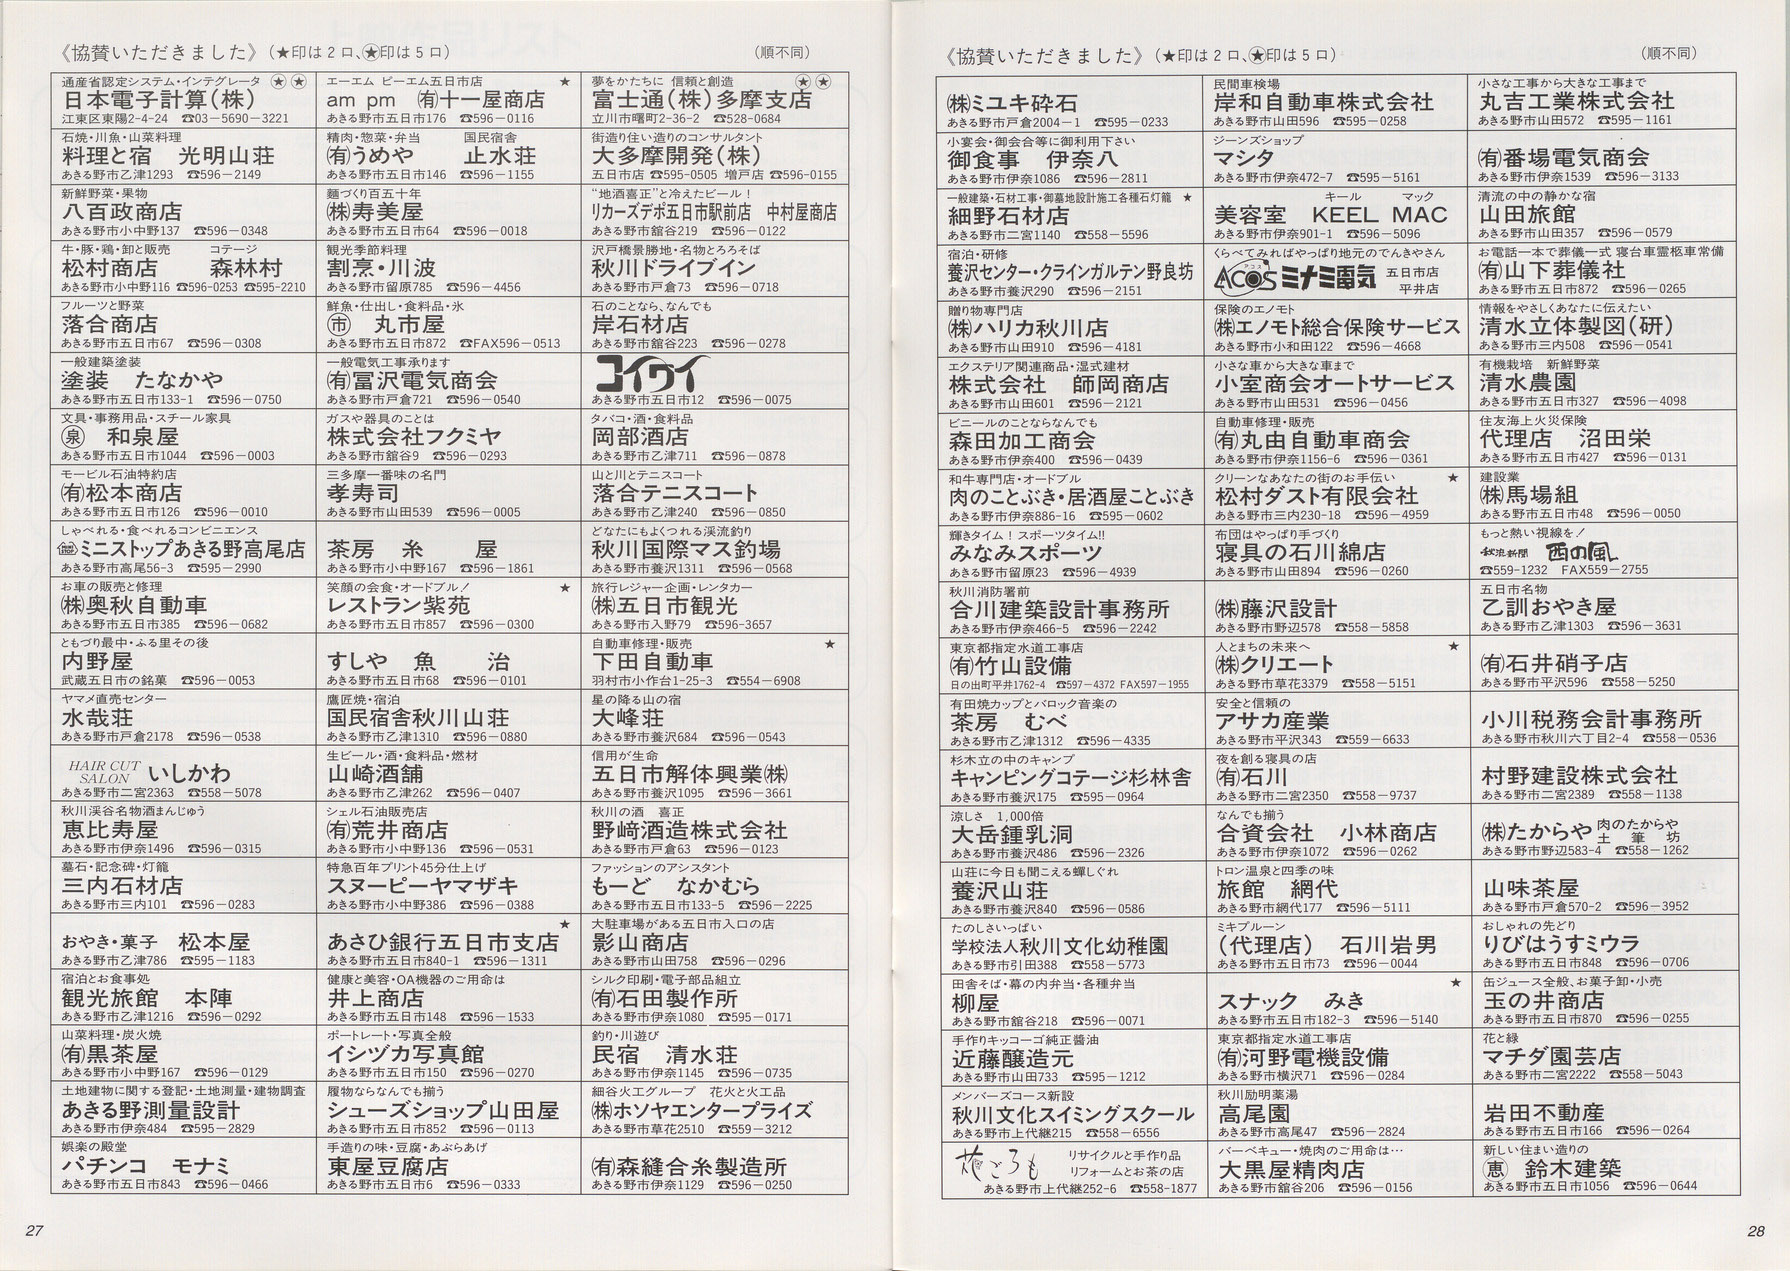 《協賛いただきました》(★印は2口、★印は5口)
(順不同)
通産省認定システム・インテグレータ ★ ★
日本電子計算(株)
江東区東陽2-4-24 ☎03-5690-3221
エーエム ピーエム五日市店 ★
am pm ㈲十一屋商店
あきる野市五日市176 ☎596-0116
夢をかたちに 信頼と創造 ★ ★
富士通(株)多摩支店
立川市曙町2-36-2 ☎528-0684
石焼・川魚・山菜料理
料理と宿 光明山荘
あきる野市乙津1293 ☎596-2149
精肉・惣菜・弁当 国民宿舎
㈲うめや 止水荘
あきる野市五日市146 ☎596-1155
街造り住い造りのコンサルタント
大多摩開発(株)
五日市店 ☎595-0505 増戸店 ☎596-0155
新鮮野菜・果物
八百政商店
あきる野市小中野137 ☎596-0348
麺づくり百五十年
㈱寿美屋
あきる野市五日市64 ☎596-0018
“地酒喜正”と冷えたビール!
リカーズデポ五日市駅前店 中村屋商店
あきる野市舘谷219 ☎596-0122
牛・豚・鶏・卸と販売 コテージ
松村商店 森林村
あきる野市小中野116 ☎596-0253 ☎595-2210
観光季節料理
割烹・川波
あきる野市留原785 ☎596-4456
沢戸橋景勝地・名物とろろそば
秋川ドライブイン
あきる野市戸倉73 ☎596-0718
フルーツと野菜
落合商店
あきる野市五日市67 ☎596-0308
鮮魚・仕出し・食料品・氷
市 丸市屋
あきる野市五日市872 ☎FAX596-0513
石のことなら、なんでも
岸石材店
あきる野市舘谷223 ☎596-0278
一般建築塗装
塗装 たなかや
あきる野市五日市133-1 ☎596-0750
一般電気工事承ります
㈲冨沢電気商会
あきる野市戸倉721 ☎596-0540
コイワイ
あきる野市五日市12 ☎596-0075
文具・事務用品・スチール家具
泉 和泉屋
あきる野市五日市1044 ☎596-0003
ガスや器具のことは
株式会社フクミヤ
あきる野市舘谷9 ☎596-0293
タバコ・酒・食料品
岡部酒店
あきる野市乙津711 ☎596-0878
モービル石油特約店
㈲松本商店
あきる野市五日市126 ☎596-0010
三多摩一番味の名門
孝寿司
あきる野市山田539 ☎596-0005
山と川とテニスコート
落合テニスコート
あきる野市乙津240 ☎596-0850
しゃべれる・食べれるコンビニエンス
ミニストップあきる野高尾店
あきる野市高尾56-3 ☎595-2990
茶房 糸 屋
あきる野市小中野167 ☎596-1861
どなたにもよくつれる渓流釣り
秋川国際マス釣場
あきる野市養沢1311 ☎596-0568
お車の販売と修理
㈱奥秋自動車
あきる野市五日市385 ☎596-0682
笑顔の会食・オードブル! ★
レストラン紫苑
あきる野市五日市857 ☎596-0300
旅行レジャー企画・レンタカー
㈱五日市観光
あきる野市入野79 ☎596-3657
ともづり最中・ふる里その後
内野屋
武蔵五日市の銘菓 ☎596-0053
すしや 魚 治
あきる野市五日市68 ☎596-0101
自動車修理・販売 ★
下田自動車
羽村市小作台1-25-3 ☎554-6908
ヤマメ直売センター
水哉荘
あきる野市戸倉2178 ☎596-0538
鷹匠焼・宿泊
国民宿舎秋川山荘
あきる野市乙津1310 ☎596-0880
星の降る山の宿
大峰荘
あきる野市養沢684 ☎596-0543
HAIR CUT SALON いしかわ
あきる野市二宮2363 ☎558-5078
生ビール・酒・食料品・燃材
山崎酒舗
あきる野市乙津262 ☎596-0407
信用が生命
五日市解体興業㈱
あきる野市養沢1095 ☎596-3661
秋川渓谷名物酒まんじゅう
恵比寿屋
あきる野市伊奈1496 ☎596-0315
シェル石油販売店
㈲荒井商店
あきる野市小中野136 ☎596-0531
秋川の酒 喜正
野﨑酒造株式会社
あきる野市戸倉63 ☎596-0123
墓石・記念碑・灯籠
三内石材店
あきる野市三内101 ☎596-0283
特急百年プリント45分仕上げ
スヌーピーヤマザキ
あきる野市小中野386 ☎596-0388
ファッションのアシスタント
もーど なかむら
あきる野市五日市133-5 ☎596-2225
おやき・菓子 松本屋
あきる野市乙津786 ☎595-1183
★
あさひ銀行五日市支店
あきる野市五日市840-1 ☎596-1311
大駐車場がある五日市入口の店
影山商店
あきる野市山田758 ☎596-0296
宿泊とお食事処
観光旅館 本陣
あきる野市乙津1216 ☎596-0292
健康と美容・OA機器のご用命は
井上商店
あきる野市五日市148 ☎596-1533
シルク印刷・電子部品組立
㈲石田製作所
あきる野市伊奈1080 ☎595-0171
山菜料理・炭火焼
㈲黒茶屋
あきる野市小中野167 ☎596-0129
ポートレート・写真全般
イシヅカ写真館
あきる野市五日市150 ☎596-0270
釣り・川遊び
民宿 清水荘
あきる野市伊奈1145 ☎596-0735
土地建物に関する登記・土地測量・建物調査
あきる野測量設計
あきる野市伊奈484 ☎595-2829
履物ならなんでも揃う
シューズショップ山田屋
あきる野市五日市852 ☎596-0113
細谷火工グループ 花火と火工品
㈱ホソヤエンタープライズ
あきる野市草花2510 ☎559-3212
娯楽の殿堂
パチンコ モナミ
あきる野市五日市843 ☎596-0466
手造りの味・豆腐・あぶらあげ
東屋豆腐店
あきる野市五日市6 ☎596-0333
㈲森縫合糸製造所
あきる野市伊奈1129 ☎596-0250
27
《協賛いただきました》(★印は2口、★印は5口)
(順不同)
㈱ミユキ砕石
あきる野市戸倉2004-1 ☎595-0233
民間車検場
岸和自動車株式会社
あきる野市山田596 ☎595-0258
小さな工事から大きな工事まで
丸吉工業株式会社
あきる野市山田572 ☎595-1161
小宴会・御会合等に御利用下さい
御食事 伊奈八
あきる野市伊奈1086 ☎596-2811
ジーンズショップ
マシタ
あきる野市伊奈472-7 ☎595-5161
㈲番場電気商会
あきる野市伊奈1539 ☎596-3133
一般建築・石材工事・御墓地設計施工各種石灯籠 ★
細野石材店
あきる野市二宮1140 ☎558-5596
キール マック
美容室 KEEL MAC
あきる野市伊奈901-1 ☎596-5096
清流の中の静かな宿
山田旅館
あきる野市山田357 ☎596-0579
宿泊・研修
養沢センター・クラインガルテン野良坊
あきる野市養沢290 ☎596-2151
くらべてみればやっぱり地元のでんきやさん
アコス
ACOS ミナミ電気 五日市店 平井店
お電話一本で葬儀一式 寝台車霊柩車常備
㈲山下葬儀社
あきる野市五日市872 ☎596-0265
贈り物専門店
㈱ハリカ秋川店
あきる野市山田910 ☎596-4181
保険のエノモト
㈱エノモト総合保険サービス
あきる野市小和田122 ☎596-4668
情報をやさしくあなたに伝えたい
清水立体製図(研)
あきる野市三内508 ☎596-0541
エクステリア関連商品・湿式建材
株式会社 師岡商店
あきる野市山田601 ☎596-2121
小さな車から大きな車まで
小室商会オートサービス
あきる野市山田531 ☎596-0456
有機栽培 新鮮野菜
清水農園
あきる野市五日市327 ☎596-4098
ビニールのことならなんでも
森田加工商会
あきる野市伊奈400 ☎596-0439
自動車修理・販売
㈲丸由自動車商会
あきる野市伊奈1156-6 ☎596-0361
住友海上火災保険
代理店 沼田栄
あきる野市五日市427 ☎596-0131
和牛専門店・オードブル
肉のことぶき・居酒屋ことぶき
あきる野市伊奈886-16 ☎595-0602
クリーンなあなたの街のお手伝い ★
松村ダスト有限会社
あきる野市三内230-18 ☎596-4959
建設業
㈱馬場組
あきる野市五日市48 ☎596-0050
輝きタイム! スポーツタイム!!
みなみスポーツ
あきる野市留原23 ☎596-4939
布団はやっぱり手づくり
寝具の石川綿店
あきる野市山田894 ☎596-0260
もっと熱い視線を!
秋浪新聞 西の風
☎559-1232 FAX559-2755
秋川消防署前
合川建築設計事務所
あきる野市伊奈466-5 ☎596-2242
㈱藤沢設計
あきる野市野辺578 ☎558-5858
五日市名物
乙訓おやき屋
あきる野市乙津1303 ☎596-3631
東京都指定水道工事店
㈲竹山設備
日の出町平井1762-4 ☎597-4372 FAX597-1955
人とまちの未来へ ★
㈱クリエート
あきる野市草花3379 ☎558-5151
㈲石井硝子店
あきる野市平沢596 ☎558-5250
有田焼カップとバロック音楽の
茶房 むべ
あきる野市乙津1312 ☎596-4335
安全と信頼の
アサカ産業
あきる野市平沢343 ☎559-6633
小川税務会計事務所
あきる野市秋川六丁目2-4 ☎558-0536
杉木立の中のキャンプ
キャンピングコテージ杉林舎
あきる野市養沢175 ☎595-0964
夜を創る寝具の店
㈲石川
あきる野市二宮2350 ☎558-9737
村野建設株式会社
あきる野市二宮2389 ☎558-1138
涼しさ 1,000倍
大岳鍾乳洞
あきる野市養沢486 ☎596-2326
なんでも揃う
合資会社 小林商店
あきる野市伊奈1072 ☎596-0262
㈱たからや 肉のたからや 土筆坊
あきる野市野辺583-4 ☎558-1262
山荘に今日も聞こえる蟬しぐれ
養沢山荘
あきる野市養沢840 ☎596-0586
トロン温泉と四季の味
旅館 網代
あきる野市網代177 ☎596-5111
山味茶屋
あきる野市戸倉570-2 ☎596-3952
たのしさいっぱい
学校法人秋川文化幼稚園
あきる野市引田388 ☎558-5773
ミキプルーン
(代理店) 石川岩男
あきる野市五日市73 ☎596-0044
おしゃれの先どり
りびはうすミウラ
あきる野市五日市848 ☎596-0706
田舎そば・幕の内弁当・各種弁当
柳屋
あきる野市舘谷218 ☎596-0071
★
スナック みき
あきる野市五日市182-3 ☎596-5140
缶ジュース全般、お菓子卸・小売
玉の井商店
あきる野市五日市870 ☎596-0255
手作りキッコーゴ純正醬油
近藤醸造元
あきる野市山田733 ☎595-1212
東京都指定水道工事店
㈲河野電機設備
あきる野市横沢71 ☎596-0284
花と緑
マチダ園芸店
あきる野市二宮2222 ☎558-5043
メンバーズコース新設
秋川文化スイミングスクール
あきる野市上代継215 ☎558-6556
秋川励明薬湯
高尾園
あきる野市高尾47 ☎596-2824
岩田不動産
あきる野市五日市166 ☎596-0264
花ごろも リサイクルと手作り品
リフォームとお茶の店
あきる野市上代継252-6 ☎558-1877
バーベキュー・焼肉のご用命は…
大黒屋精肉店
あきる野市舘谷206 ☎596-0156
新しい住まい造りの
恵 鈴木建築
あきる野市五日市1056 ☎596-0644
28